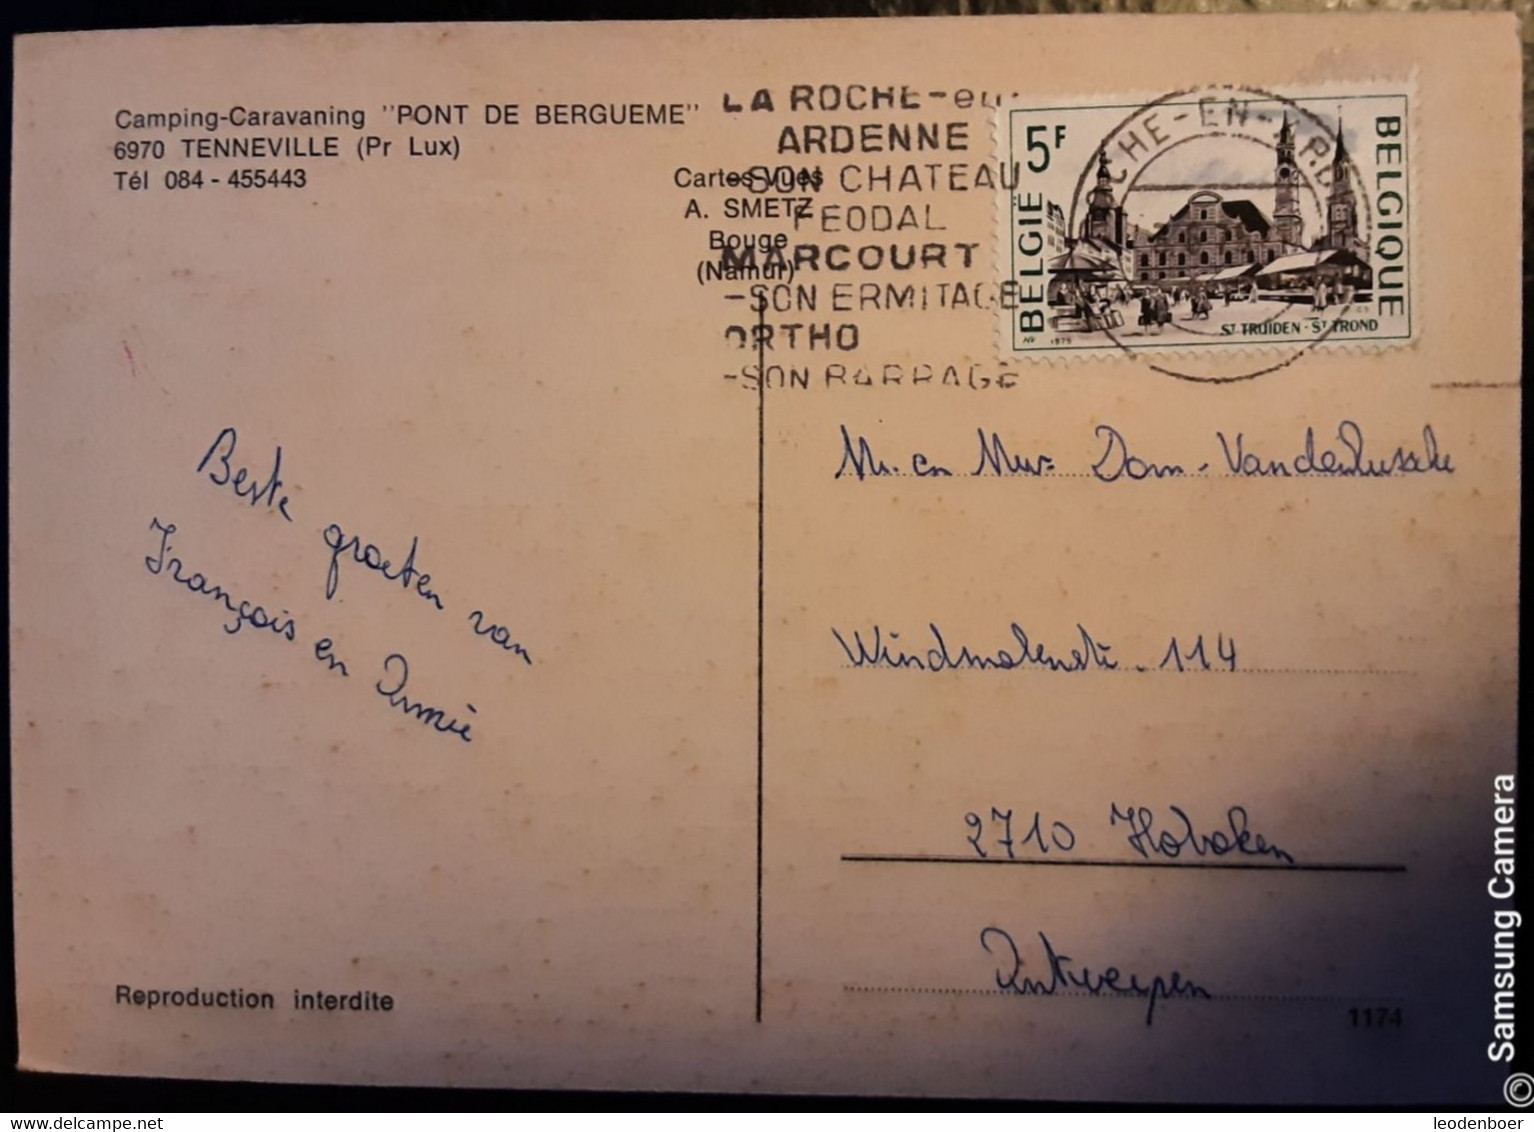 Camping-Caravaning "PONT DE BERGUEME"
6970 TENNEVILLE (Pr Lux)
Tél 084 - 455443
Cartes Vues
A. SMETZ
Bouge
(Namur)
LA ROCHE-en-
ARDENNE
-SON CHATEAU
FEODAL
MARCOURT
-SON ERMITAGE
ORTHO
-SON BARRAGE
5F
BELGIË
BELGIQUE
ST TRUIDEN - ST TROND
1975
Beste groeten van
François en Annie
Mr. en Mevr. Dom-
Windmolenstr. 114
2710 Hoboken
Antwerpen
Reproduction interdite
1174
© Samsung Camera
leodenboer